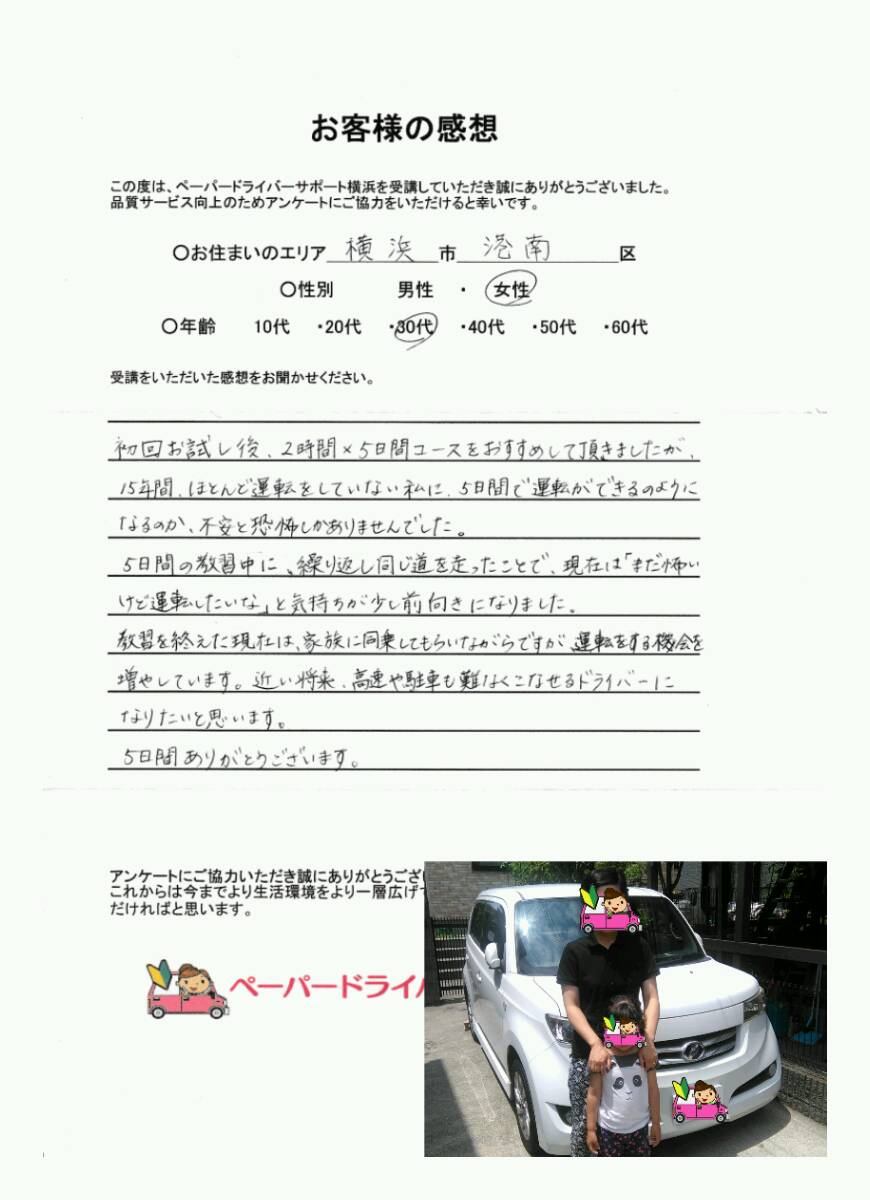 お客様の感想
この度は、ペーパードライバーサポート横浜を受講していただき誠にありがとうございました。
品質サービス向上のためアンケートにご協力をいただけると幸いです。
〇お住まいのエリア 横浜 市 港南 区
〇性別 男性 ・ 女性
〇年齢 10代 ・20代 ・30代 ・40代 ・50代 ・60代
受講をいただいた感想をお聞かせください。
初回お試し後、2時間×5日間コースをおすすめして頂きましたが、
15年間、ほとんど運転をしていない私に、5日間で運転ができるのように
なるのか、不安と恐怖しかありませんでした。
5日間の教習中に、繰り返し同じ道を走ったことで、現在は「まだ怖い
けど運転したいな」と気持ちが少し前向きになりました。
教習を終えた現在は、家族に同乗してもらいながらですが、運転をする機会を
増やしています。近い将来、高速や駐車も難なくこなせるドライバーに
なりたいと思います。
5日間ありがとうございます。
アンケートにご協力いただき誠にありがとうござい
これからは今までより生活環境をより一層広げ
だければと思います。
ペーパードライバ